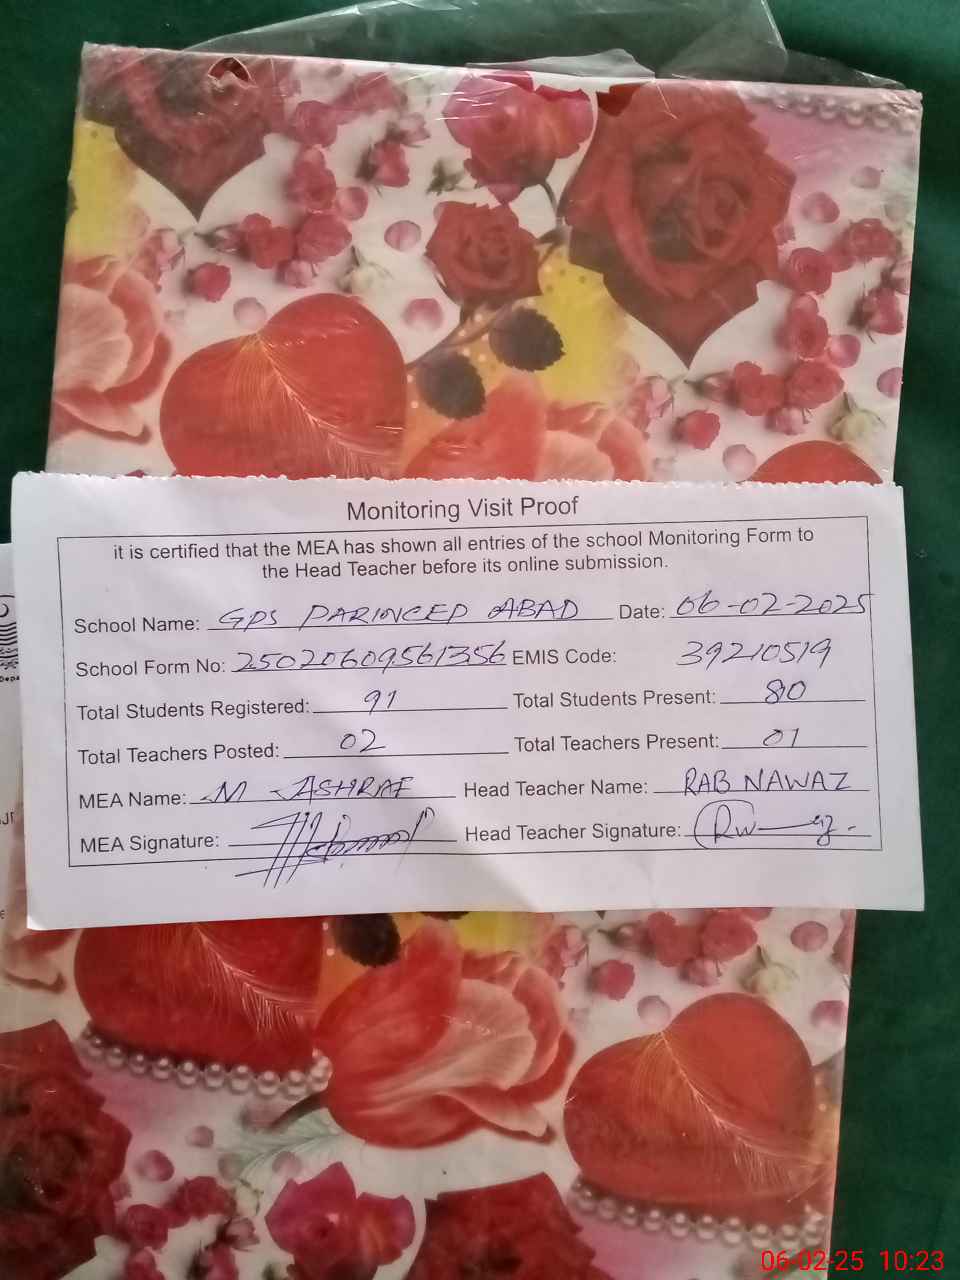 Monitoring Visit Proof
it is certified that the MEA has shown all entries of the school Monitoring Form to
the Head Teacher before its online submission.
School Name: GPS PARINCEP ABAD Date: 06-02-2025
School Form No: 25020609561356 EMIS Code: 39210519
Total Students Registered: 91 Total Students Present: 80
Total Teachers Posted: 02 Total Teachers Present: 01
MEA Name: M ASHRAF Head Teacher Name: RAB NAWAZ
MEA Signature: Head Teacher Signature:
06-02-25 10:23